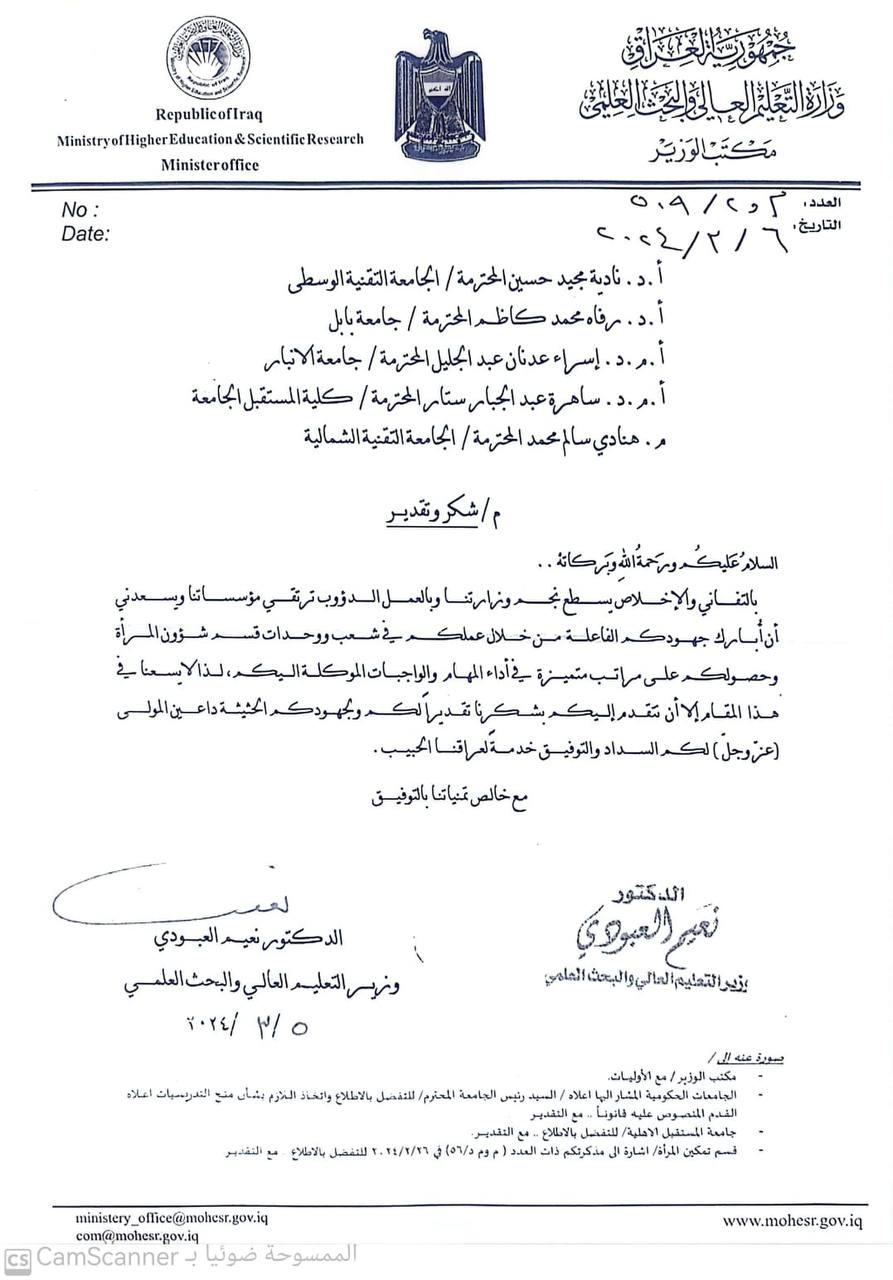 Republic of Iraq
Ministry of Higher Education & Scientific Research
Minister office
جمهورية العراق
وزارة التعليم العالي والبحث العلمي
مكتب الوزير
No :
Date:
العدد:
التاريخ: ٦ / ٣ / ٢٠٢٤
أ.د. نادية مجيد حسين المحترمة / الجامعة التقنية الوسطى
أ.د. رفاه محمد كاظم المحترمة / جامعة بابل
أ.م.د. إسراء عدنان عبد الجليل المحترمة / جامعة الانبار
أ.م.د. ساهرة عبد الجبار ستار المحترمة / كلية المستقبل الجامعة
م. هنادي سالم محمد المحترمة / الجامعة التقنية الشمالية
م/ شكر وتقدير
السلامُ عَليكُم ورَحمةُ اللهِ وبَركاتهُ ..
بالتفاني والإخلاص يسطع نجم وزارتنا وبالعمل الدؤوب ترتقي مؤسساتنا ويسعدني
أن أُبارك جهودكم الفاعلة من خلال عملكم في شعب ووحدات قسم شؤون المرأة
وحصولكم على مراتب متميزة في أداء المهام والواجبات الموكلة اليكم، لذا لايسعنا في
هذا المقام إلا أن نتقدم إليكم بشكرنا تقديراً لكم ولجهودكم الحثيثة داعين المولى
(عزّ وجلّ) لكم السداد والتوفيق خدمةً لعراقنا الحبيب.
مع خالص تمنياتنا بالتوفيق
الدكتور
نعيم العبودي
وزير التعليم العالي والبحث العلمي
الدكتور نعيم العبودي
وزير التعليم العالي والبحث العلمي
٥ /٣ /٢٠٢٤
صورة عنه الى/
- مكتب الوزير/ مع الأوليات.
- الجامعات الحكومية المشار اليها اعلاه / السيد رئيس الجامعة المحترم/ للتفضل بالاطلاع واتخاذ اللازم بشأن منح التدريسيات اعلاه
القدم المنصوص عليه قانوناً .. مع التقدير
- جامعة المستقبل الاهلية/ للتفضل بالاطلاع .. مع التقدير.
- قسم تمكين المرأة/ اشارة الى مذكرتكم ذات العدد ( م وم د/٥٦) في ٢٠٢٤/٢/٢٦ للتفضل بالاطلاع .. مع التقدير
ministery_office@mohesr.gov.iq
com@mohesr.gov.iq
www.mohesr.gov.iq
CS CamScanner الممسوحة ضوئيا بـ